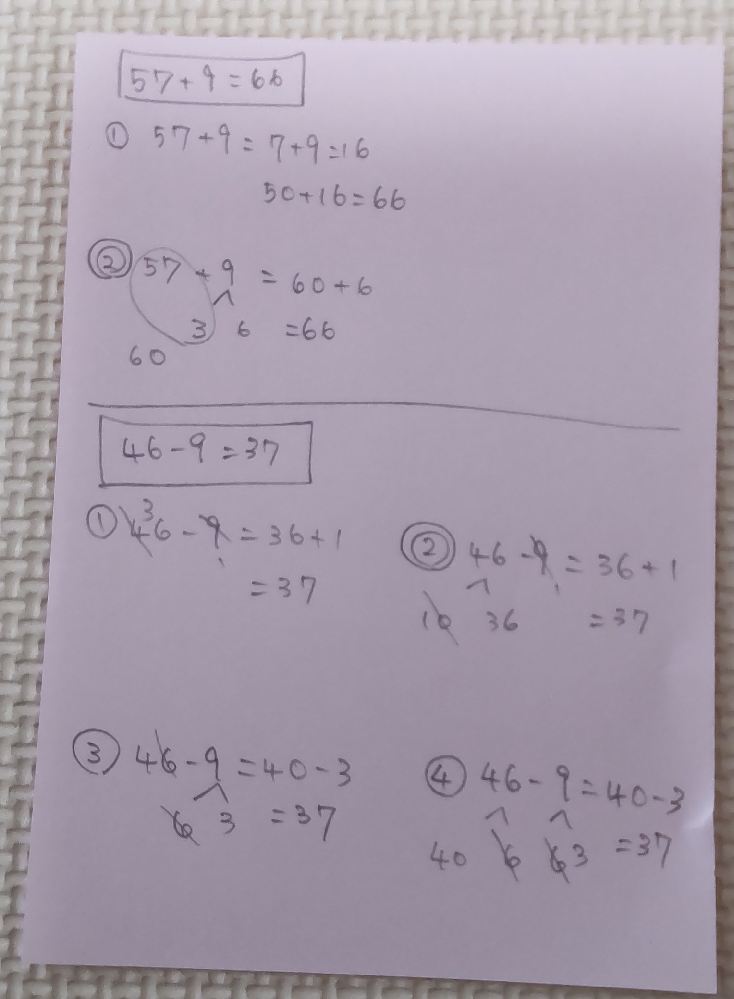 57+9=66
① 57+9= 7+9=16
50+16=66
② 57+9 = 60+6
3 6 =66
60
46-9=37
① 3
46-9=36+1
1
=37
② 46-9=36+1
1
10 36 =37
③ 46-9=40-3
6 3 =37
④ 46-9=40-3
40 6 6 3 =37